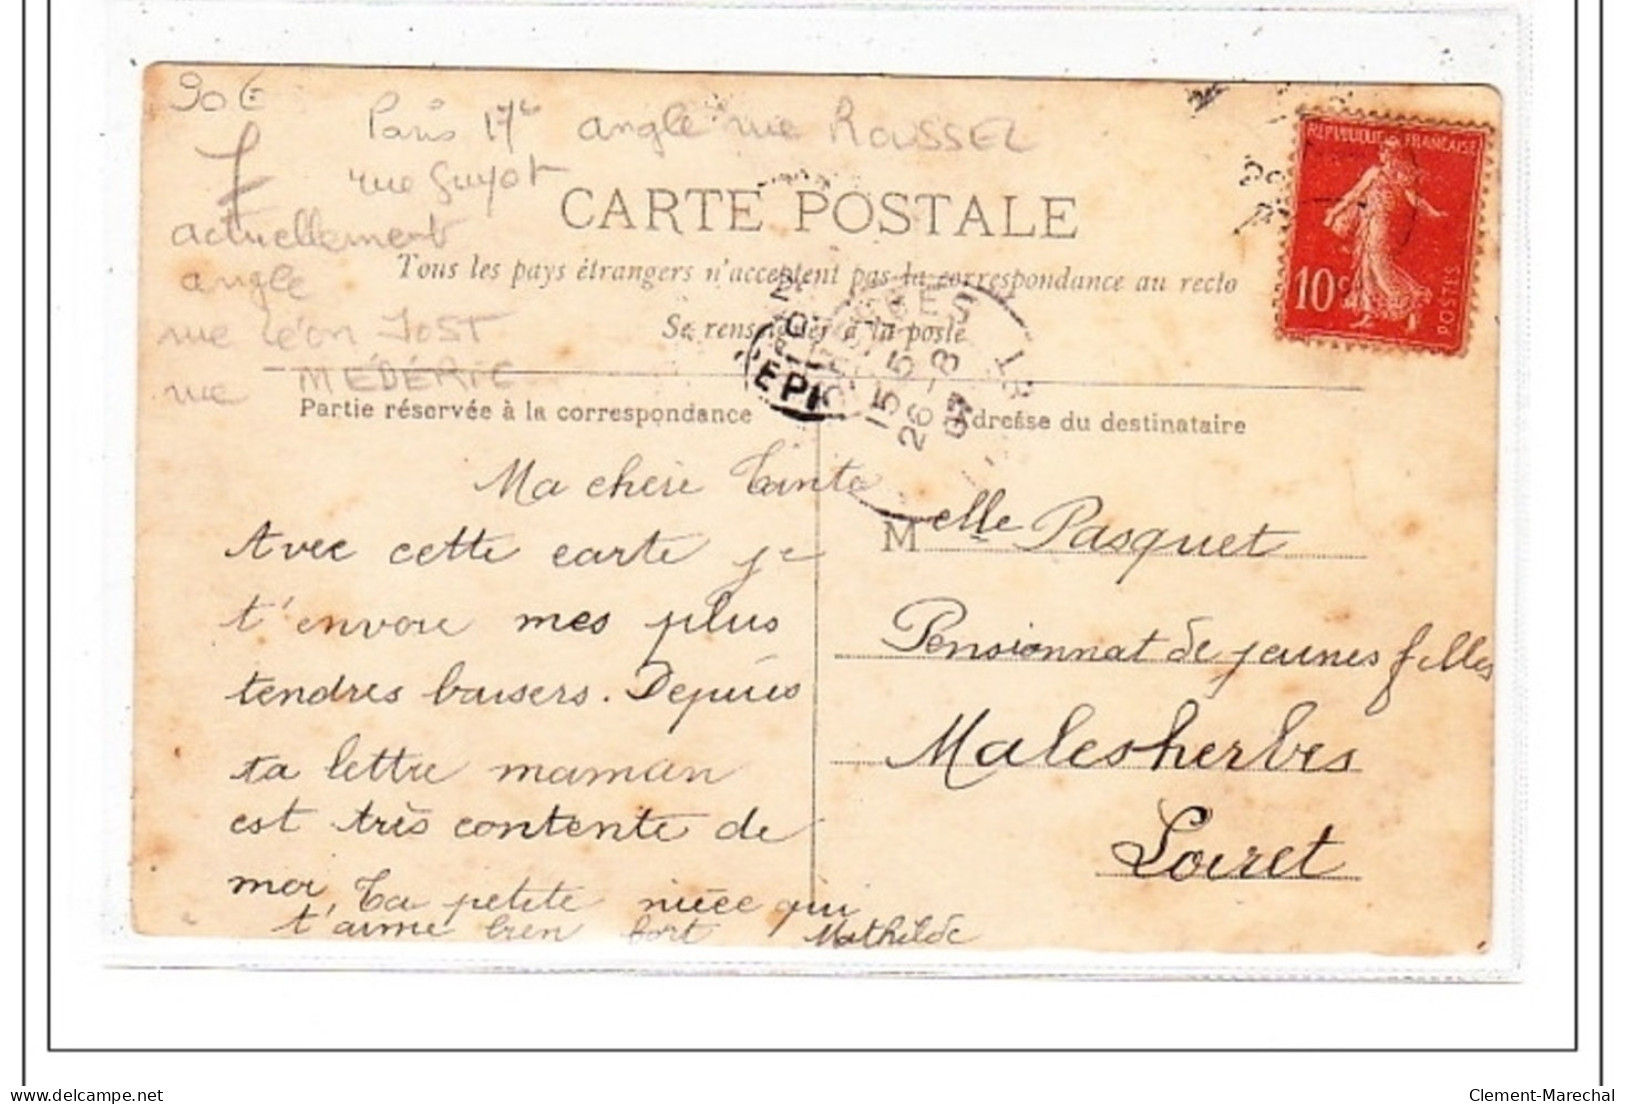 90€
Paris 17e angle rue ROUSSEL
rue Guyot
actuellement
angle
rue Léon JOST
rue MÉDÉRIC
CARTE POSTALE
Tous les pays étrangers n'acceptent pas la correspondance au recto
Se renseigner à la poste
REPUBLIQUE FRANÇAISE
10c
POSTES
15 5
26-8
07
Partie réservée à la correspondance
Adresse du destinataire
Ma chère Tante
Avec cette carte je
t'envoie mes plus
tendres baisers. Depuis
ta lettre maman
est très contente de
moi, Ta petite nièce qui
t'aime bien fort Mathilde
Melle Pasquet
Pensionnat de jeunes filles
Malesherbes
Loiret
Clement-Marechal
delcampe.net